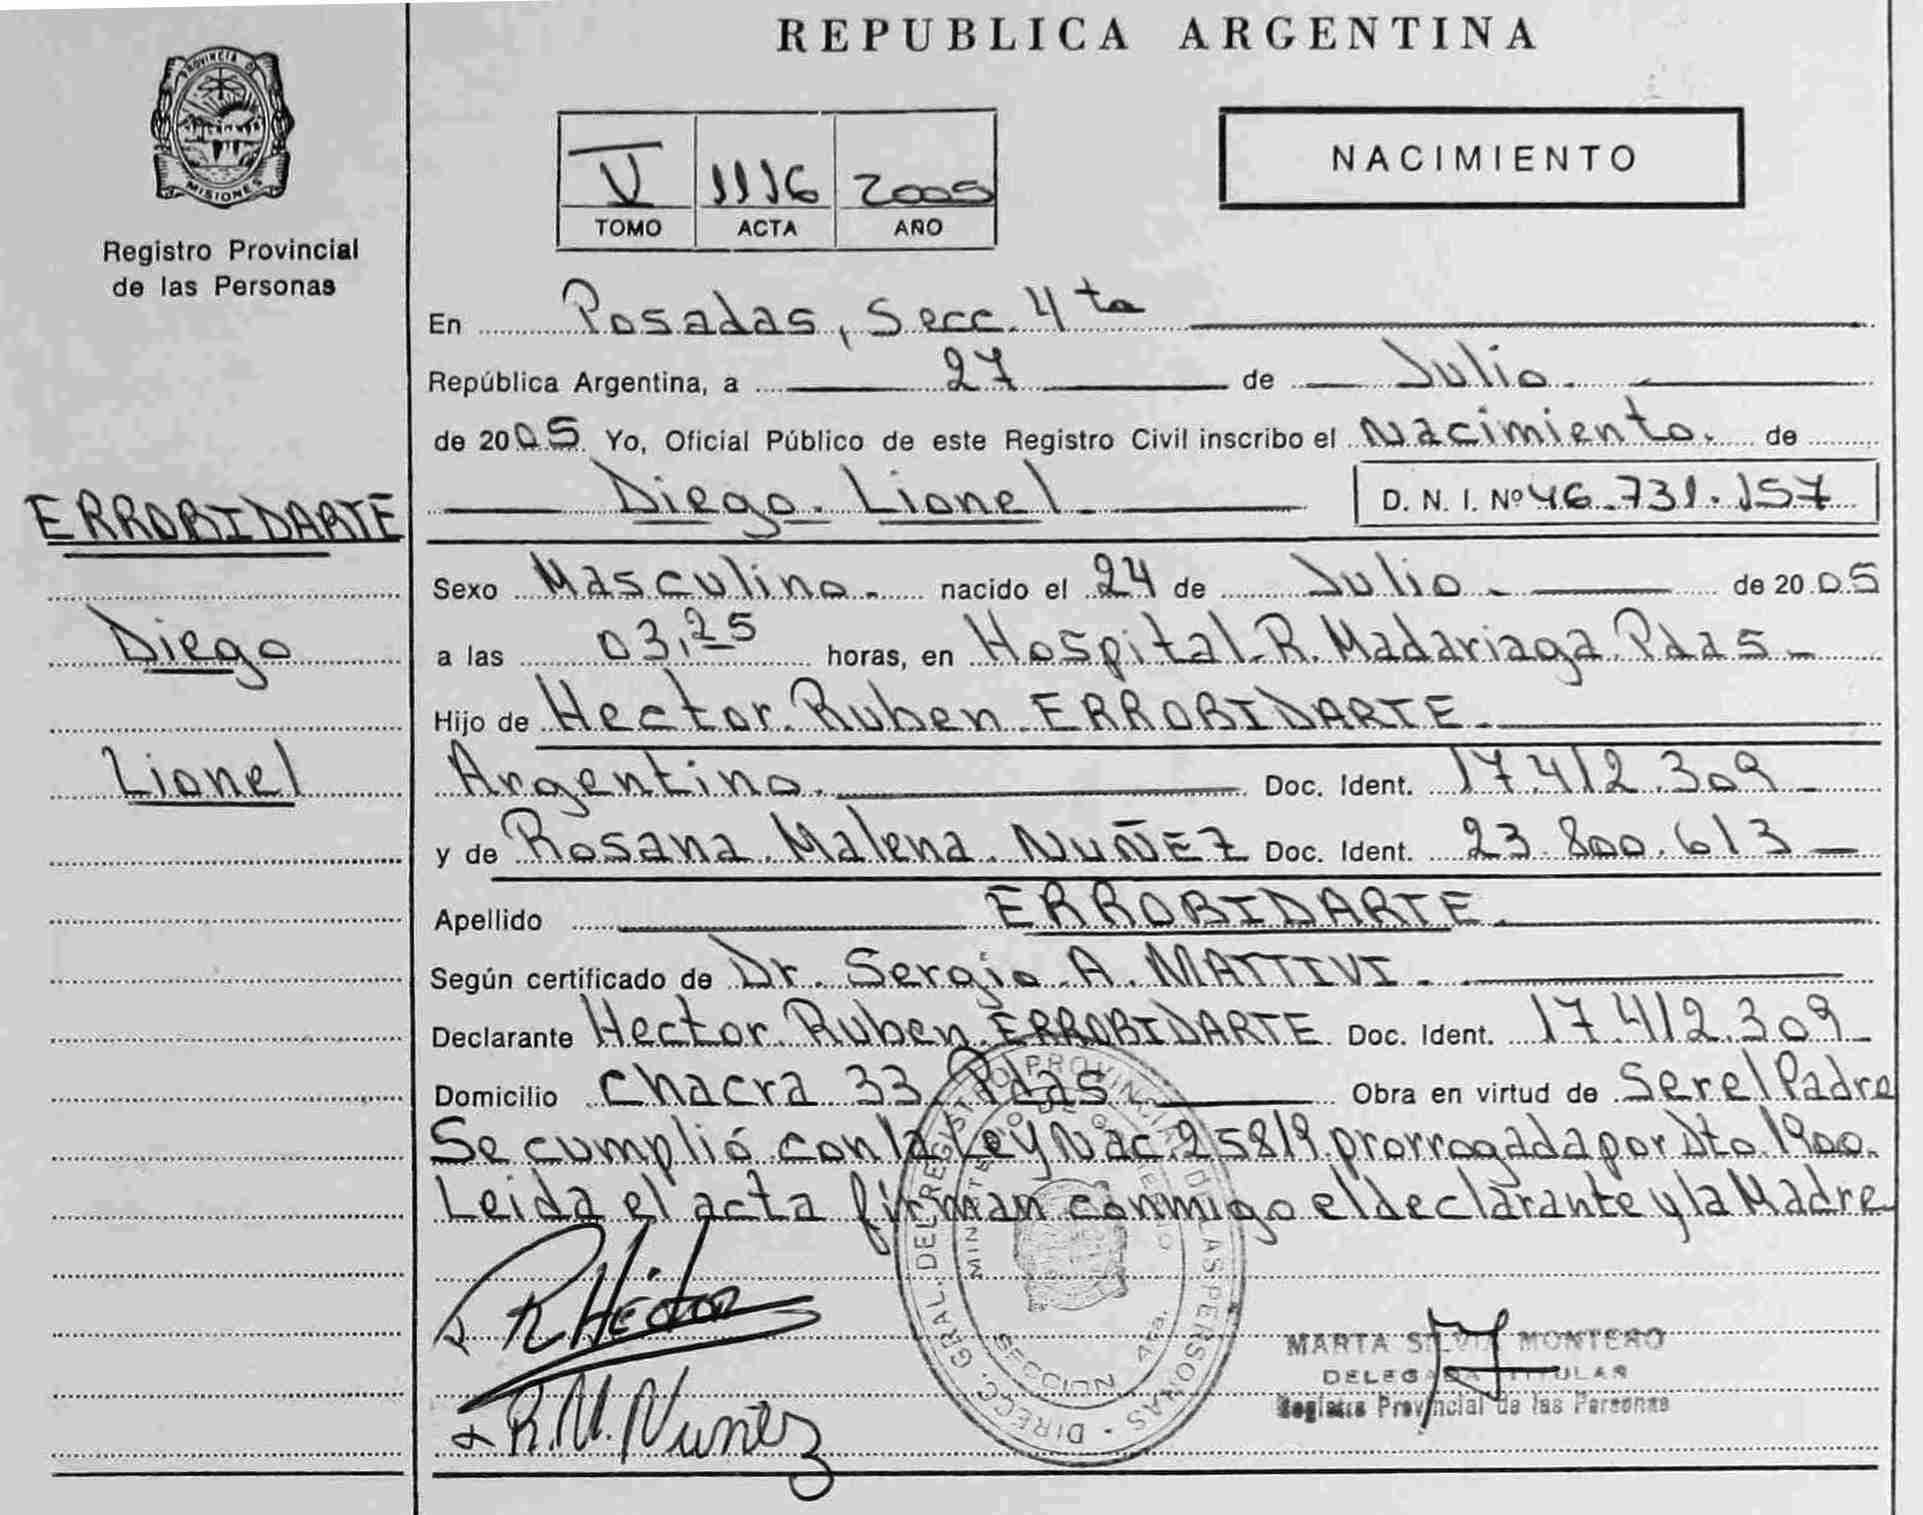 REPUBLICA ARGENTINA
PROVINCIA DE
MISIONES
Registro Provincial
de las Personas
V 1116 2005
TOMO ACTA AÑO
NACIMIENTO
En Posadas, Secc. 4ta
República Argentina, a 27 de Julio.
de 2005. Yo, Oficial Público de este Registro Civil inscribo el Nacimiento. de
Diego Lionel D. N. I. Nº 46.731.157
ERROBIDARTE
Diego
Lionel
Sexo Masculino. nacido el 24 de Julio. de 2005
a las 03,25 horas, en Hospital R. Madariaga Pdas
Hijo de Hector Ruben ERROBIDARTE.
Argentino. Doc. Ident. 17.412.309
y de Rosana Malena NUÑEZ Doc. Ident. 23.800.613
Apellido ERROBIDARTE.
Según certificado de Dr. Sergio A. MATTIVI.
Declarante Hector Ruben ERROBIDARTE Doc. Ident. 17.412.309
Domicilio Chacra 33, Pdas Obra en virtud de Ser el Padre
Se cumplió con la Ley Nac. 25819 prorrogada por Dto. 1900.
Leida el acta firman conmigo el declarante y la Madre
R Héctor
R.M. Nuñez
DIRECC. GRAL. DEL REGISTRO PROVINCIAL DE LAS PERSONAS
MINISTERIO DE GOBIERNO
SECCION 4ta.
MARTA SILVIA MONTERO
DELEGADA TITULAR
Registro Provincial de las Personas